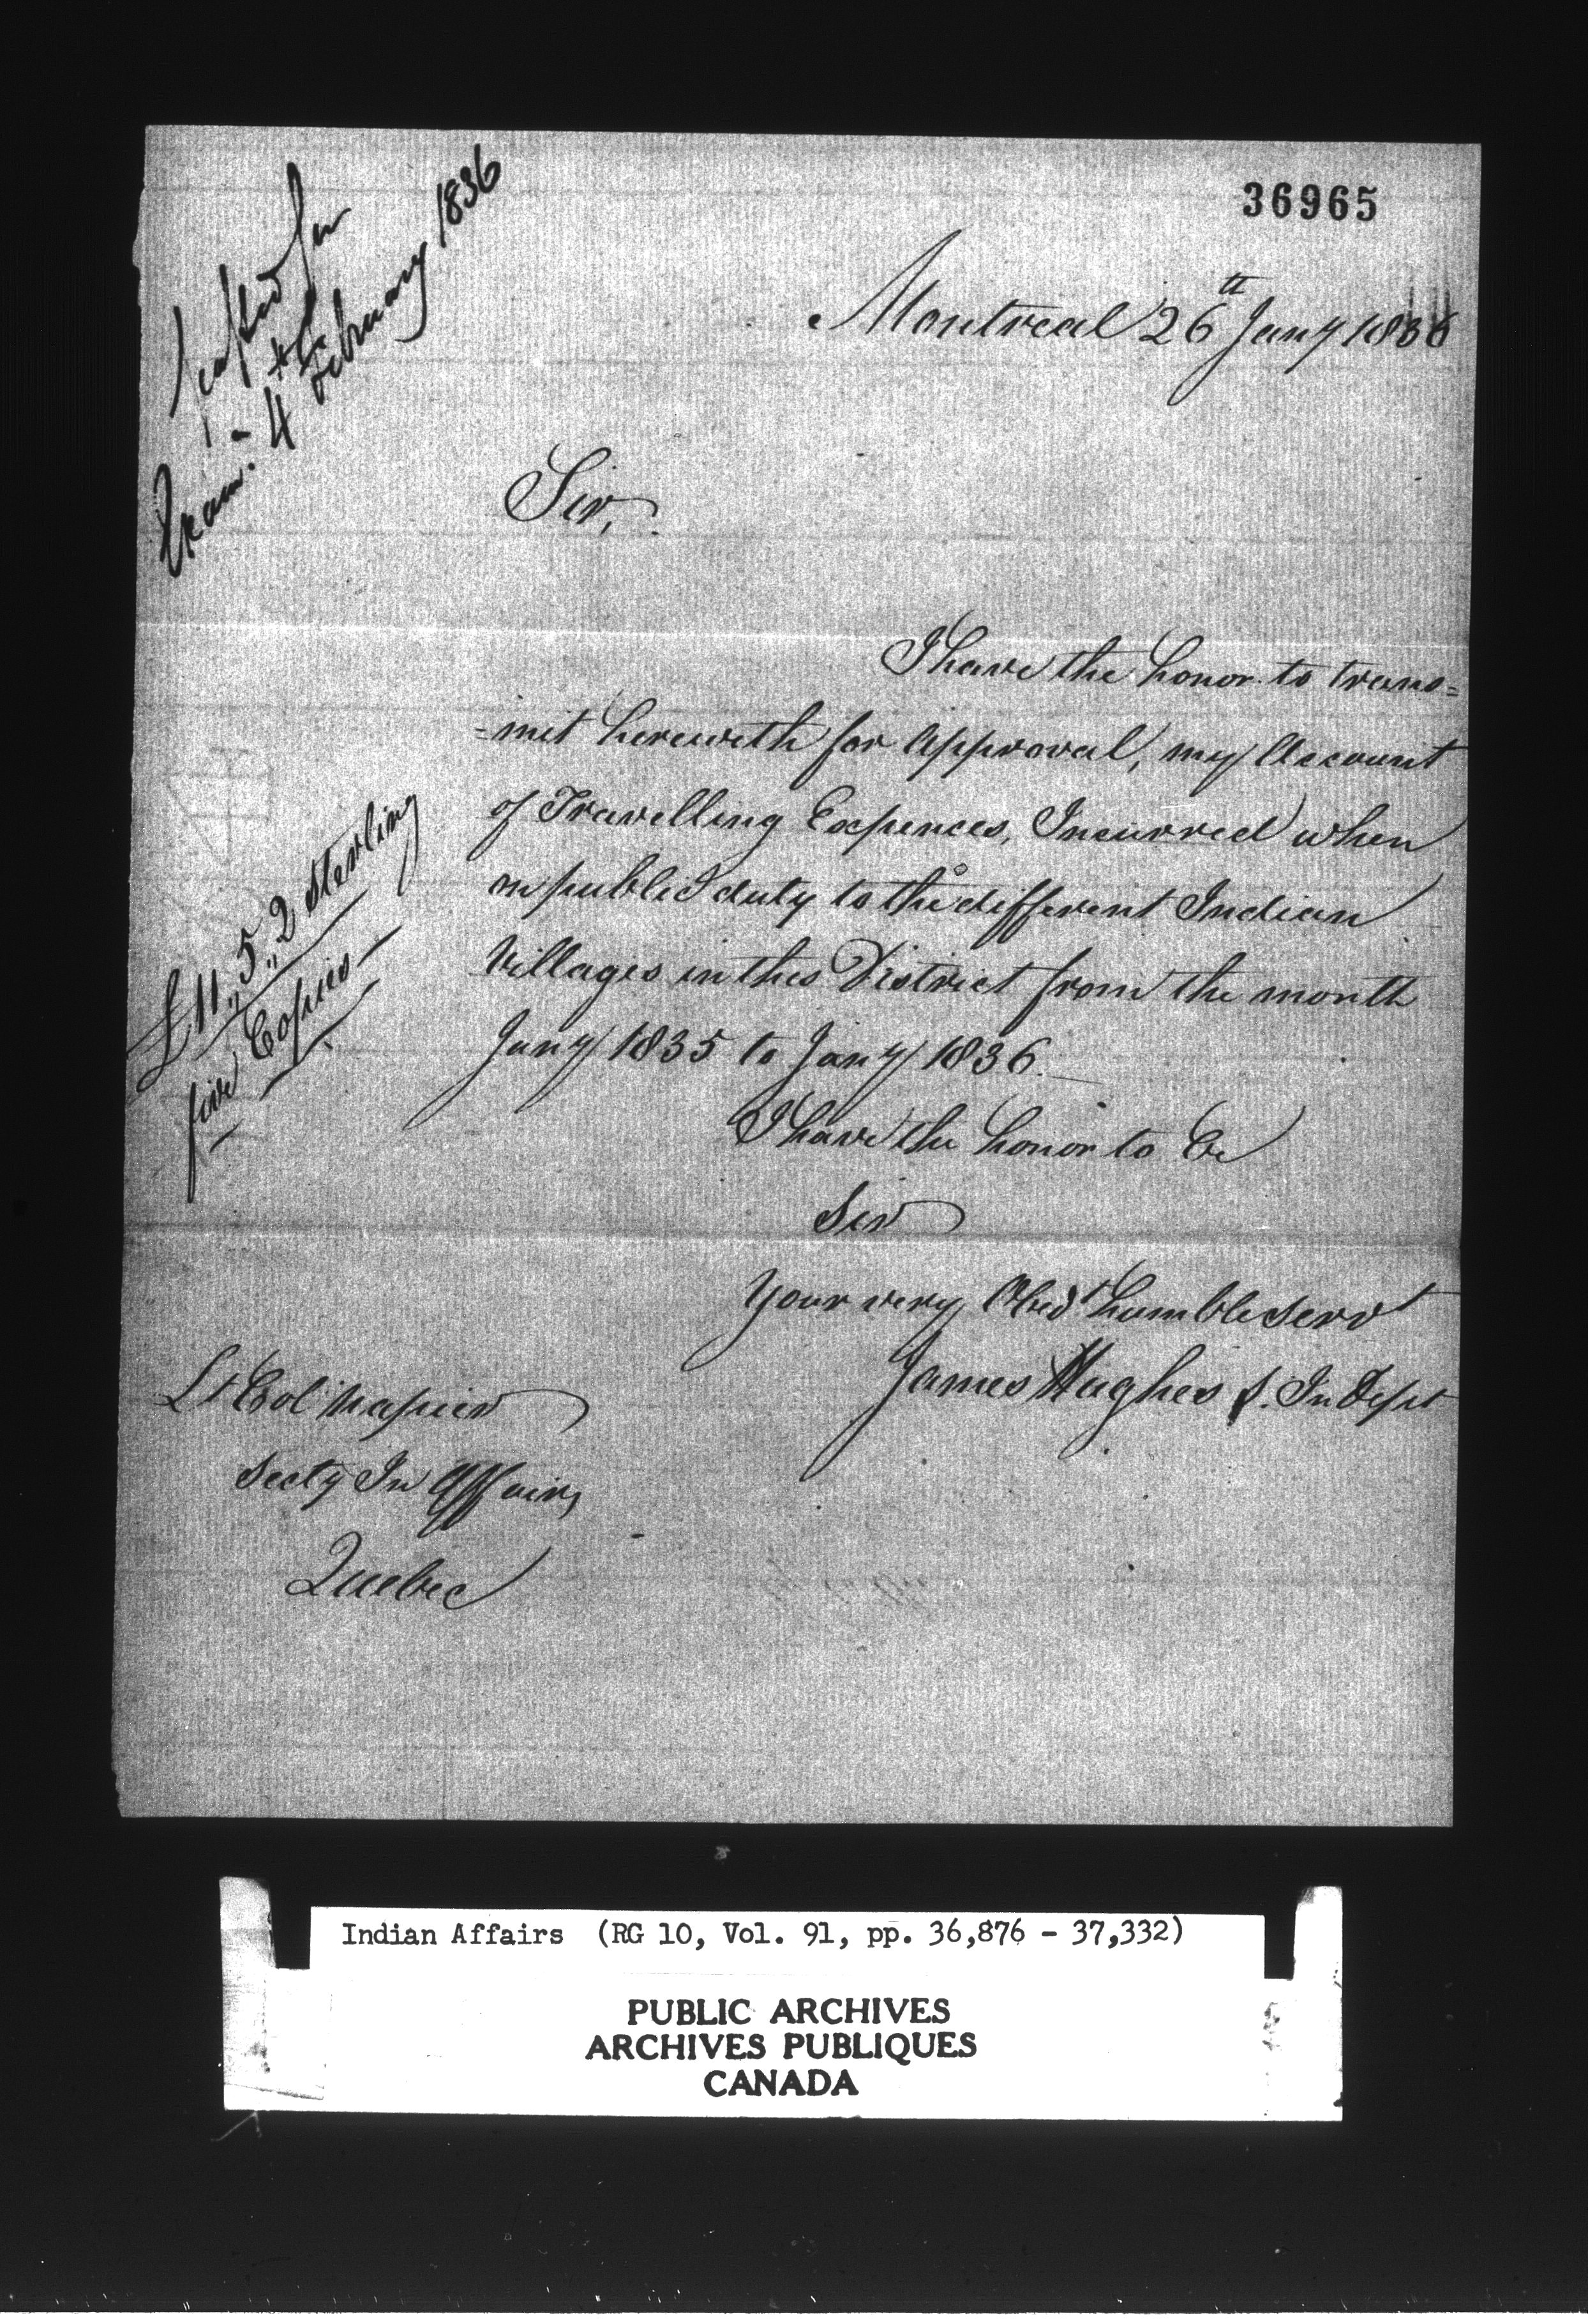 36965
Montreal 26th Jany 1836
Sir,
I have the honor to trans=
=mit herewith for Approval, my Account
of Travelling Expences, Incurred when
on public duty to the different Indian
Villages in this District from the month
Jany 1835 to Jany 1836.
I have the honor to be
Sir
Your very Obedt humble Servt
James Hughes S. In Dept
Lt Col Napier
Secty In Affairs
Quebec
4 February 1836
£11,,5,,2 Sterling
five Copies
Indian Affairs (RG 10, Vol. 91, pp. 36,876 - 37,332)
PUBLIC ARCHIVES
ARCHIVES PUBLIQUES
CANADA